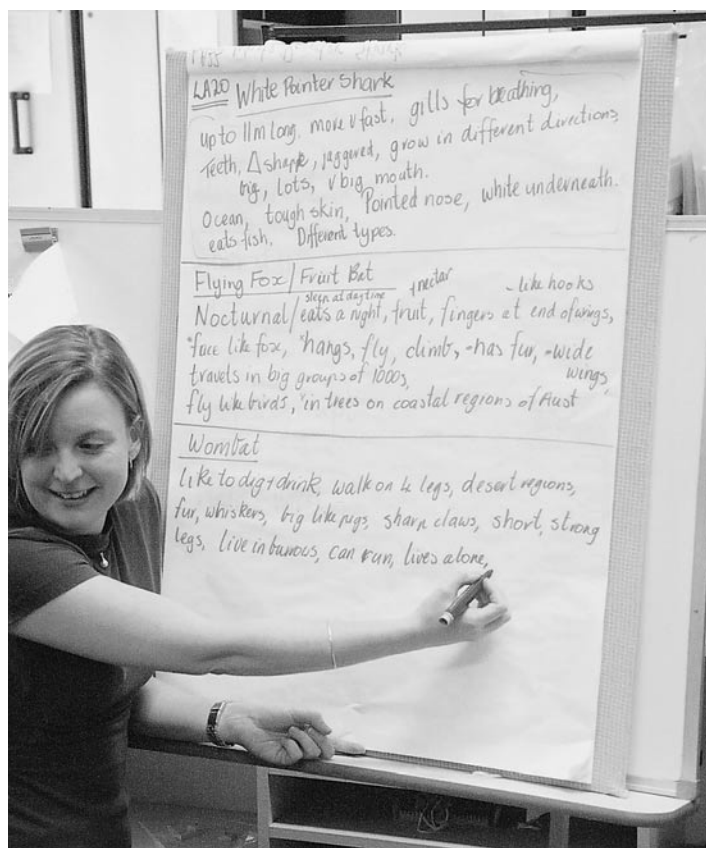 LA20 White Pointer Shark
up to 11m long. move v fast, gills for beathing,
Teeth, Δ shape, jaggered, grow in different directions,
big, lots, v big mouth.
Ocean, tough skin, Pointed nose, white underneath.
eats fish. Different types.
Flying Fox / Fruit Bat
sleep at daytime + nectar - like hooks
Nocturnal / eats a night, fruit, fingers at end of wings,
*face like fox, *hangs, fly, climb, -has fur, -wide
travels in big groups of 1000s, wings,
fly like birds, *in trees on coastal regions of Aust
Wombat
like to dig + drink, walk on 4 legs, desert regions,
fur, whiskers, big like pugs, sharp claws, short, strong
legs, live in burrows, can run, lives alone,